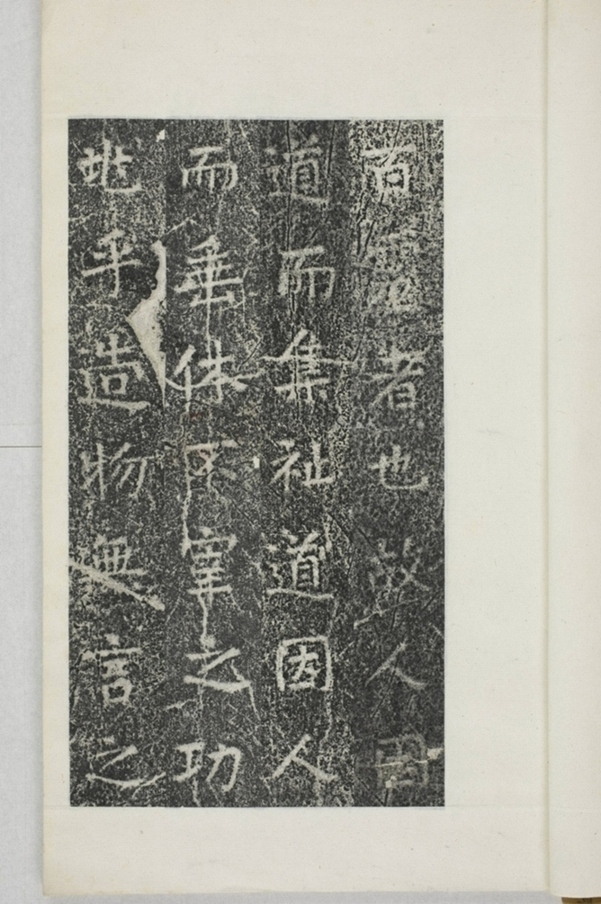 百者也故人因
道而集祉道因人
而垂休不宰之功
乎造物無言之